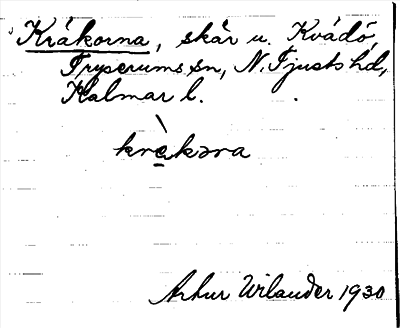 Kråkorna, skär u. Kvädö,
Tryserums sn, N. Tjusts hd,
Kalmar l.
krὰkəra
Arthur Wilander 1930